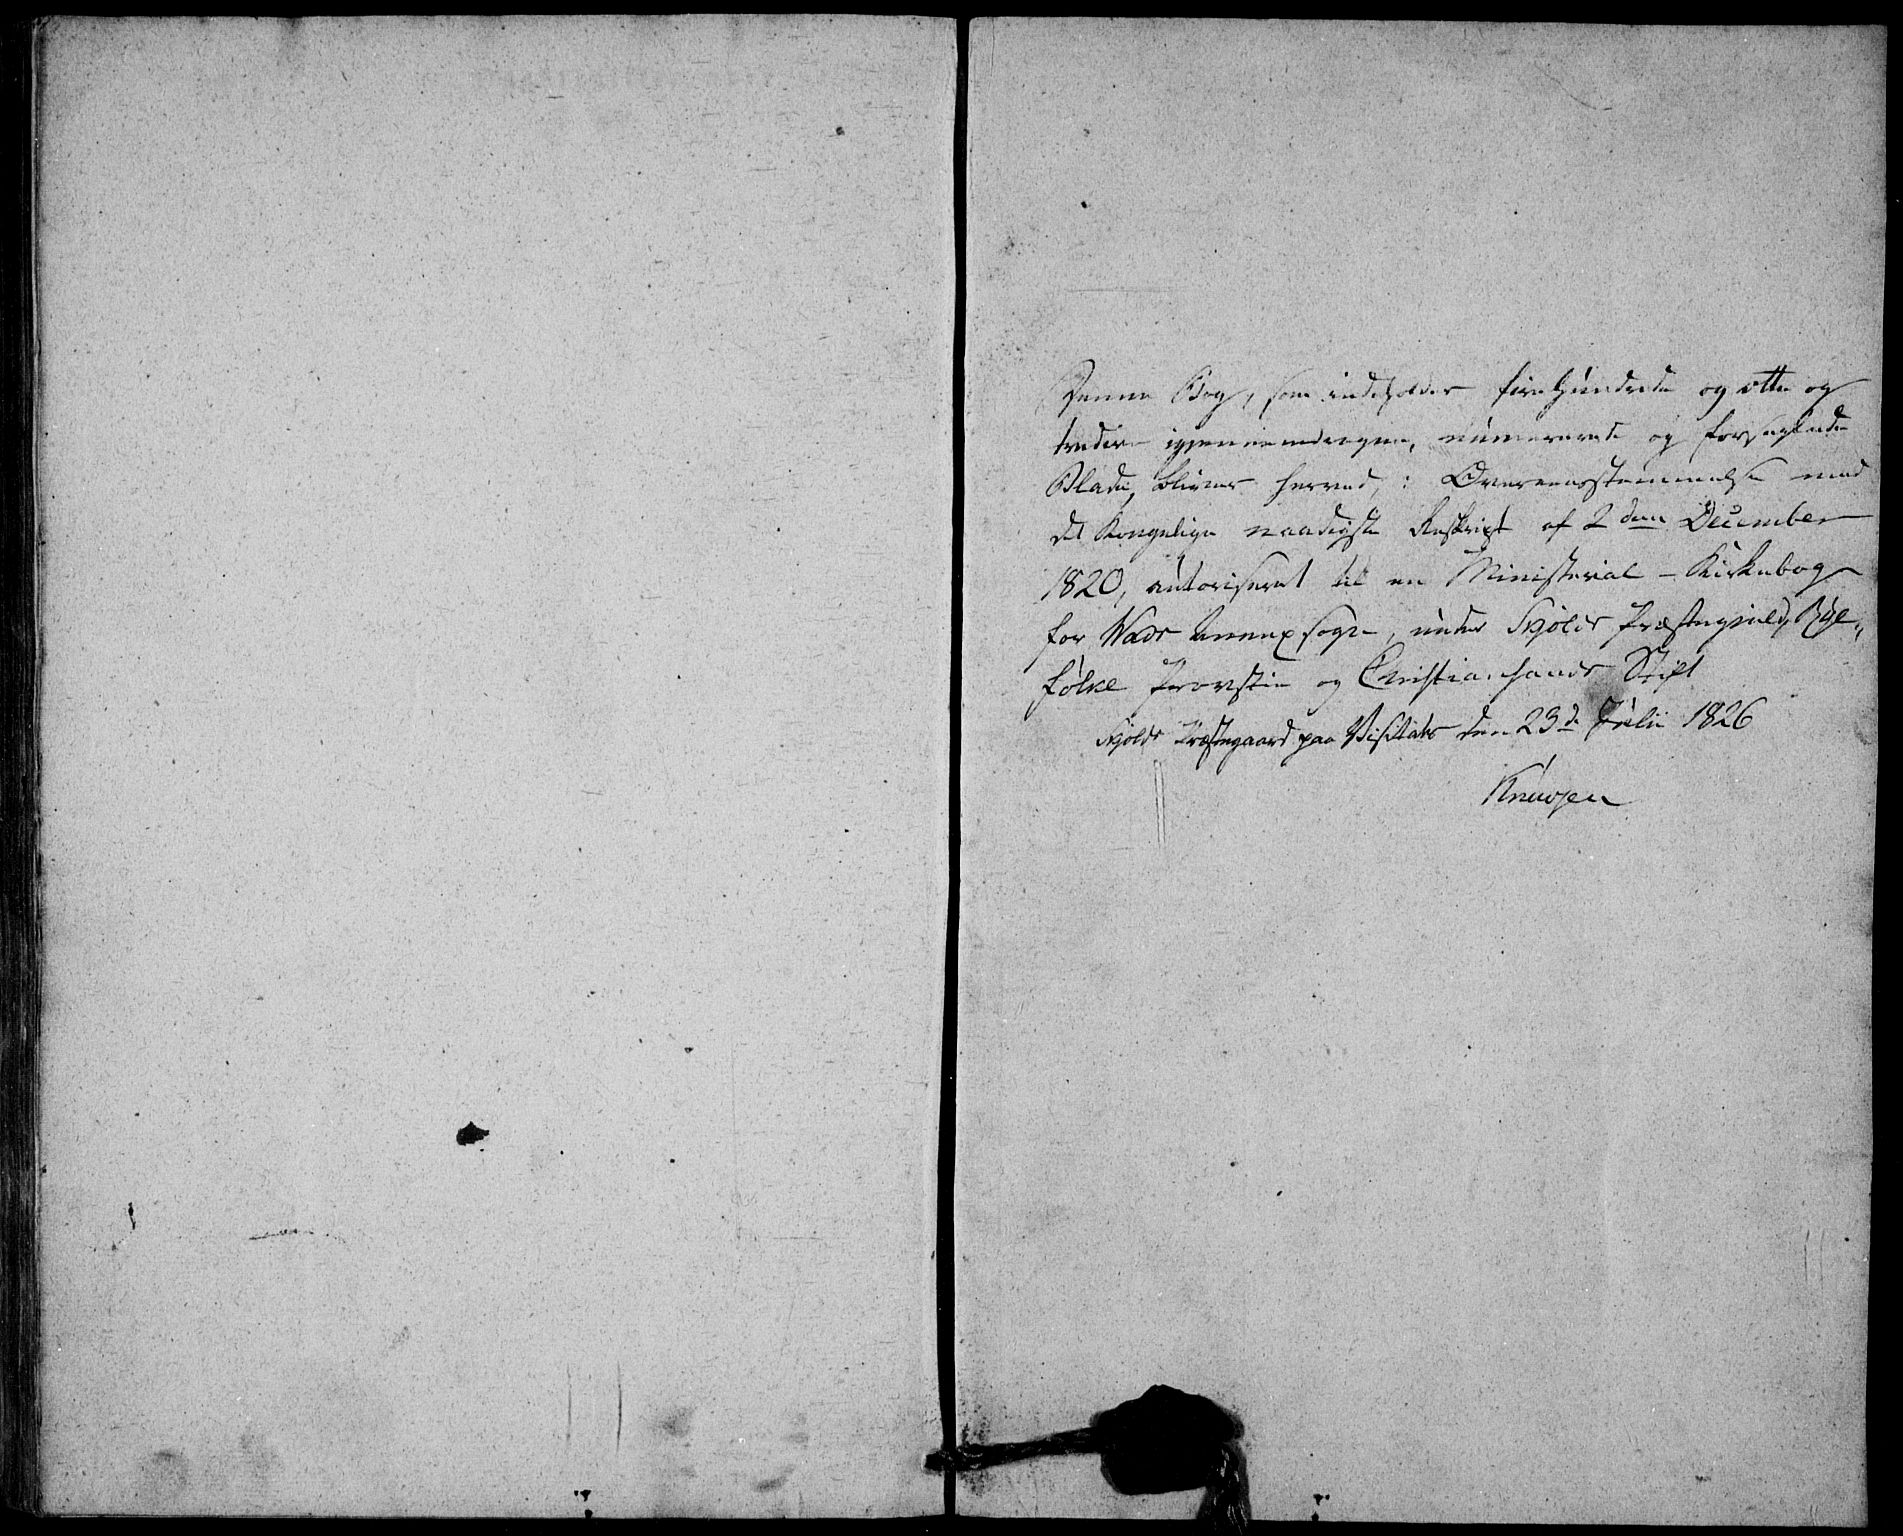 Denne Bog, som indeholder firehundrede og otte og
tredive igjennemdragne, numererede og forseglede
Blade, bliver herved, i Overeensstemmelse med
det Kongelige naadigste Reskript af 2den December
1820, autoriseret til en Ministerial-Kirkebog
for Wads Annexsogn, under Skjolds Præstegield, Rye„
fölke Provstie og Christiansands Stift
Skjolds Præstegaard paa Visitats den 23de Julii 1826